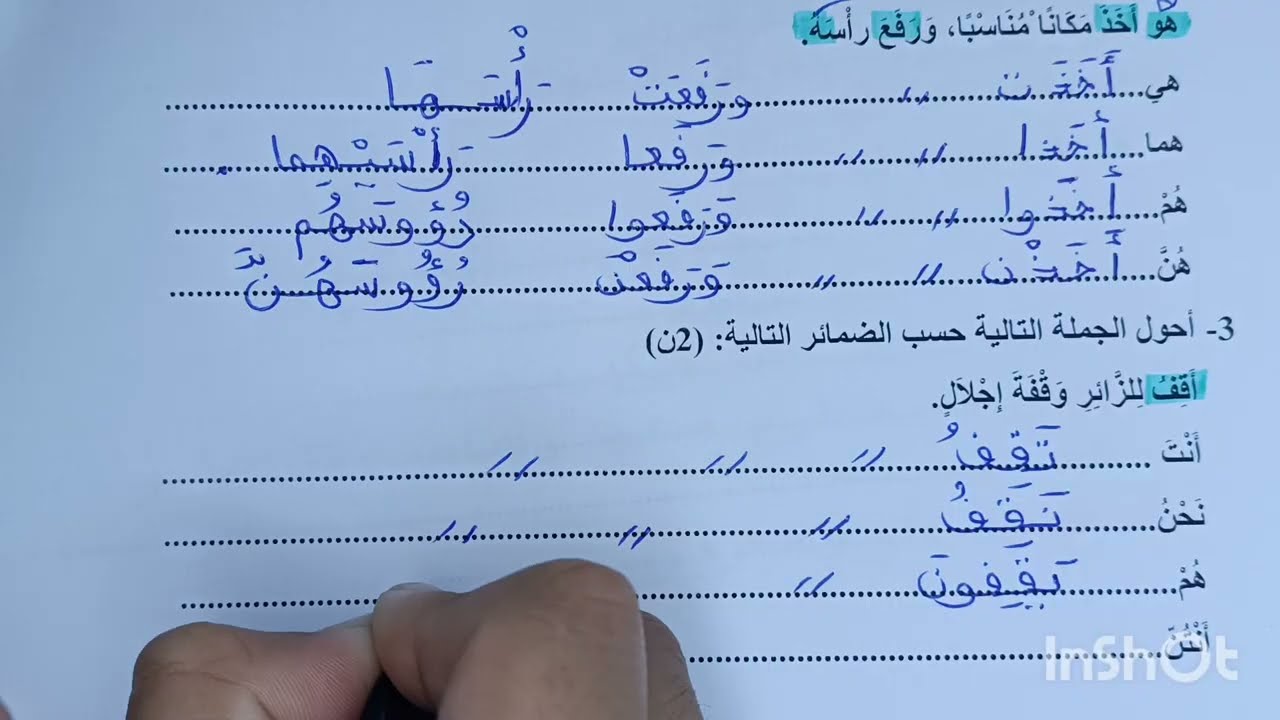 هُوَ أَخَذَ مَكَانًا مُنَاسْبًا، وَرَفَعَ رأْسَهُ.
هي....أَخَذَت ,, وَرَفَعَتْ رَأْسَهَا
هما....أَخَذَا ,, ,, وَرَفَعا رَأْسَيْهِما.
هُمْ....أَخَذُوا ,, ,, وَرَفَعوا رُؤُوسَهُم
هُنَّ....أَخَذْن ,, ,, وَرَفَعْنَ رُؤُوسَهُنَّ
3- أحول الجملة التالية حسب الضمائر التالية: (2ن)
أَقِفُ لِلزَّائِرِ وَقْفَةَ إِجْلَالٍ.
أَنْتَ .... تَقِفُ ,, ,, ,,
نَحْنُ.... نَقِفُ ,, ,, ,,
هُمْ.... يَقِفونَ ,,
أَنْتُنَّ....
InShOt